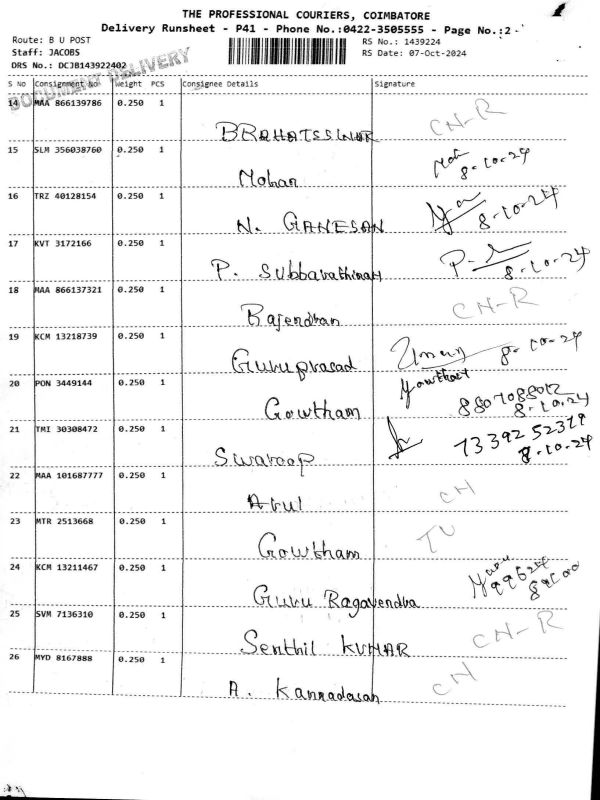 THE PROFESSIONAL COURIERS, COIMBATORE
Delivery Runsheet - P41 - Phone No.:0422-3505555 - Page No.:2
Route: B U POST
RS No.: 1439224
Staff: JACOBS
RS Date: 07-Oct-2024
DRS No.: DCJB143922402
DOCUMENT DELIVERY
S No Consignment No Weight PCS Consignee Details Signature
14 MAA 866139786 0.250 1
CN-R
15 SLM 356038760 0.250 1
Mohan 8-10-24
16 TRZ 40128154 0.250 1
N. GANESAN 8-10-24
17 KVT 3172166 0.250 1
P. Subbarathinam 8-10-24
18 MAA 866137321 0.250 1
Rajendran CN-R
19 KCM 13218739 0.250 1
Guruprasad 8-10-24
20 PON 3449144 0.250 1
Gowtham 8-10-24
21 TMI 30308472 0.250 1
Swaroop 73392 52319
8-10-24
22 MAA 101687777 0.250 1
Arul CN
23 MTR 2513668 0.250 1
Gowtham
24 KCM 13211467 0.250 1
Guru Ragavendra
25 SVM 7136310 0.250 1
Senthil KUMAR CN-R
26 MYD 8167888 0.250 1
A. Kannadasan CN